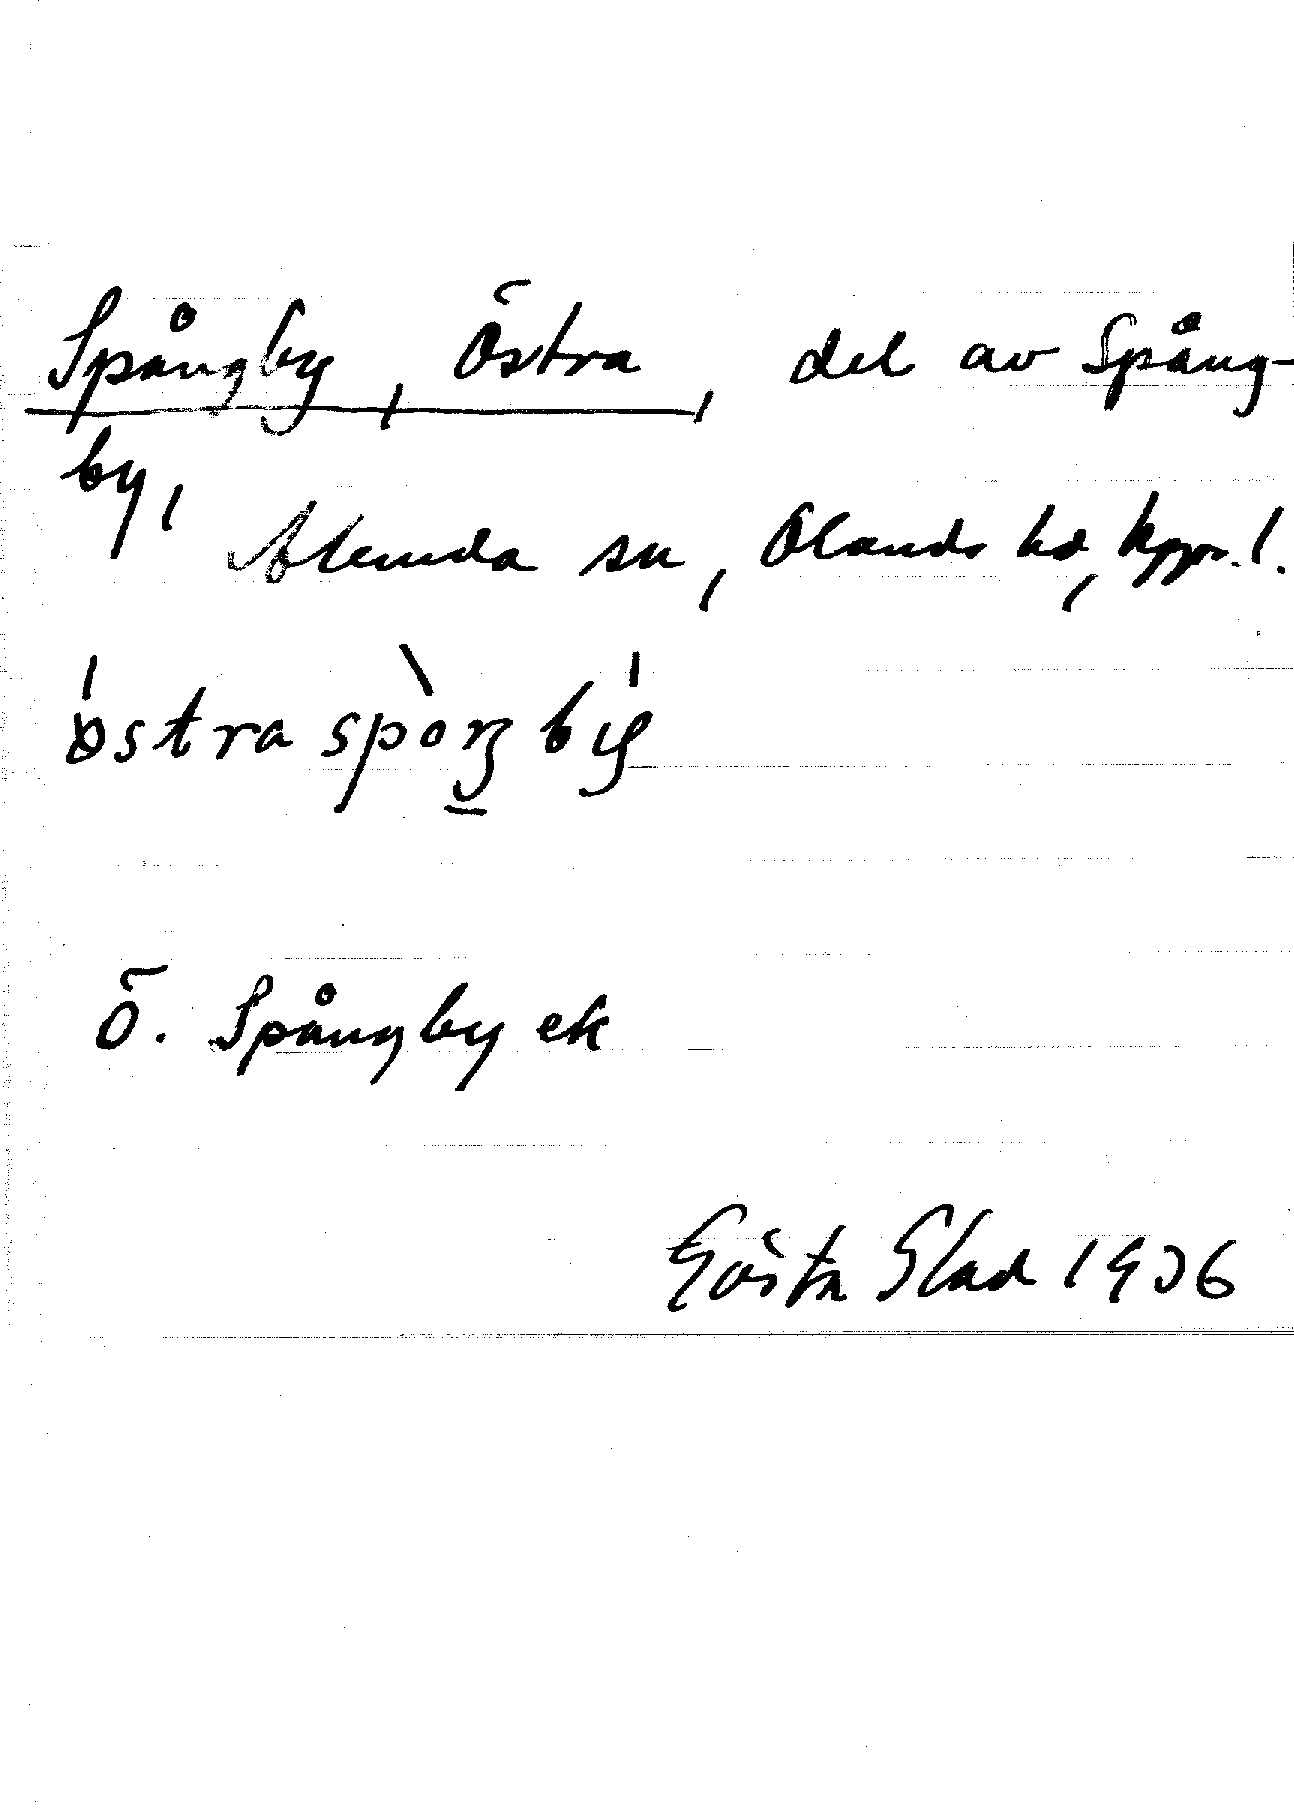 Spångby, Östra, del av Spång-
by,
Alunda sn, Ölands hd, Upps. l.
östra spòŋbý
Ö. Spångby ek
Gösta Slad 1936